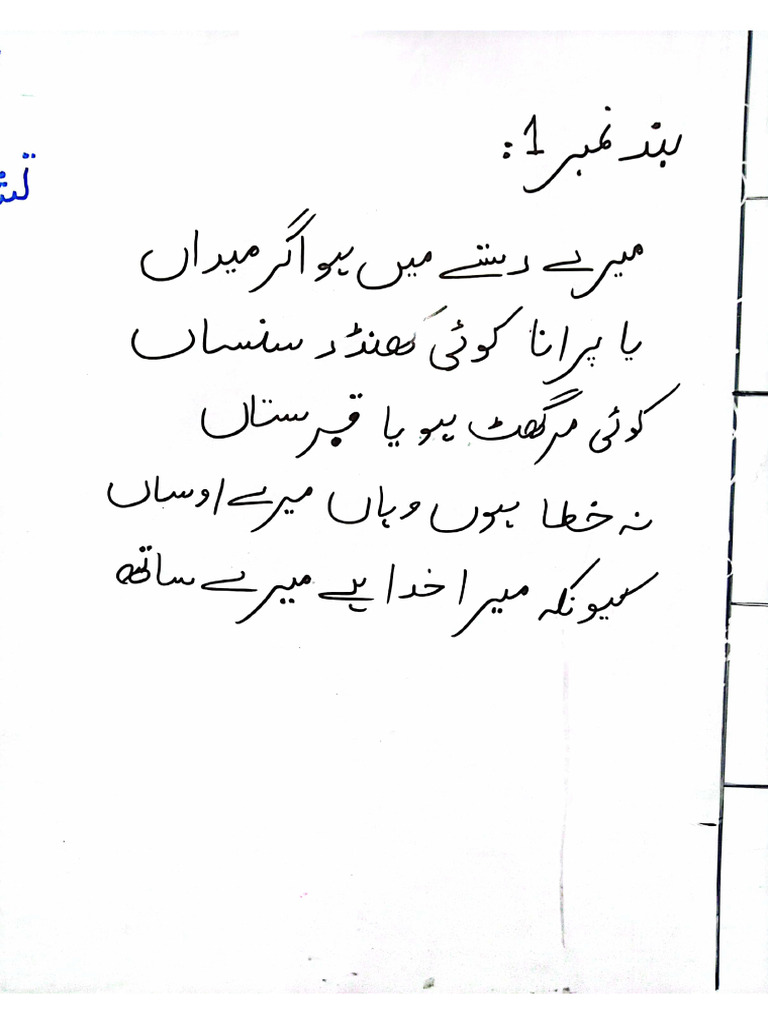 بند نمبر 1:
میرے رستے میں ہو اگر میداں
یا پرانا کوئی کھنڈر سنساں
کوئی مرگھٹ ہو یا قبرستاں
نہ خطا ہوں وہاں میرے اوساں
کیونکہ میرا خدا ہے میرے ساتھ